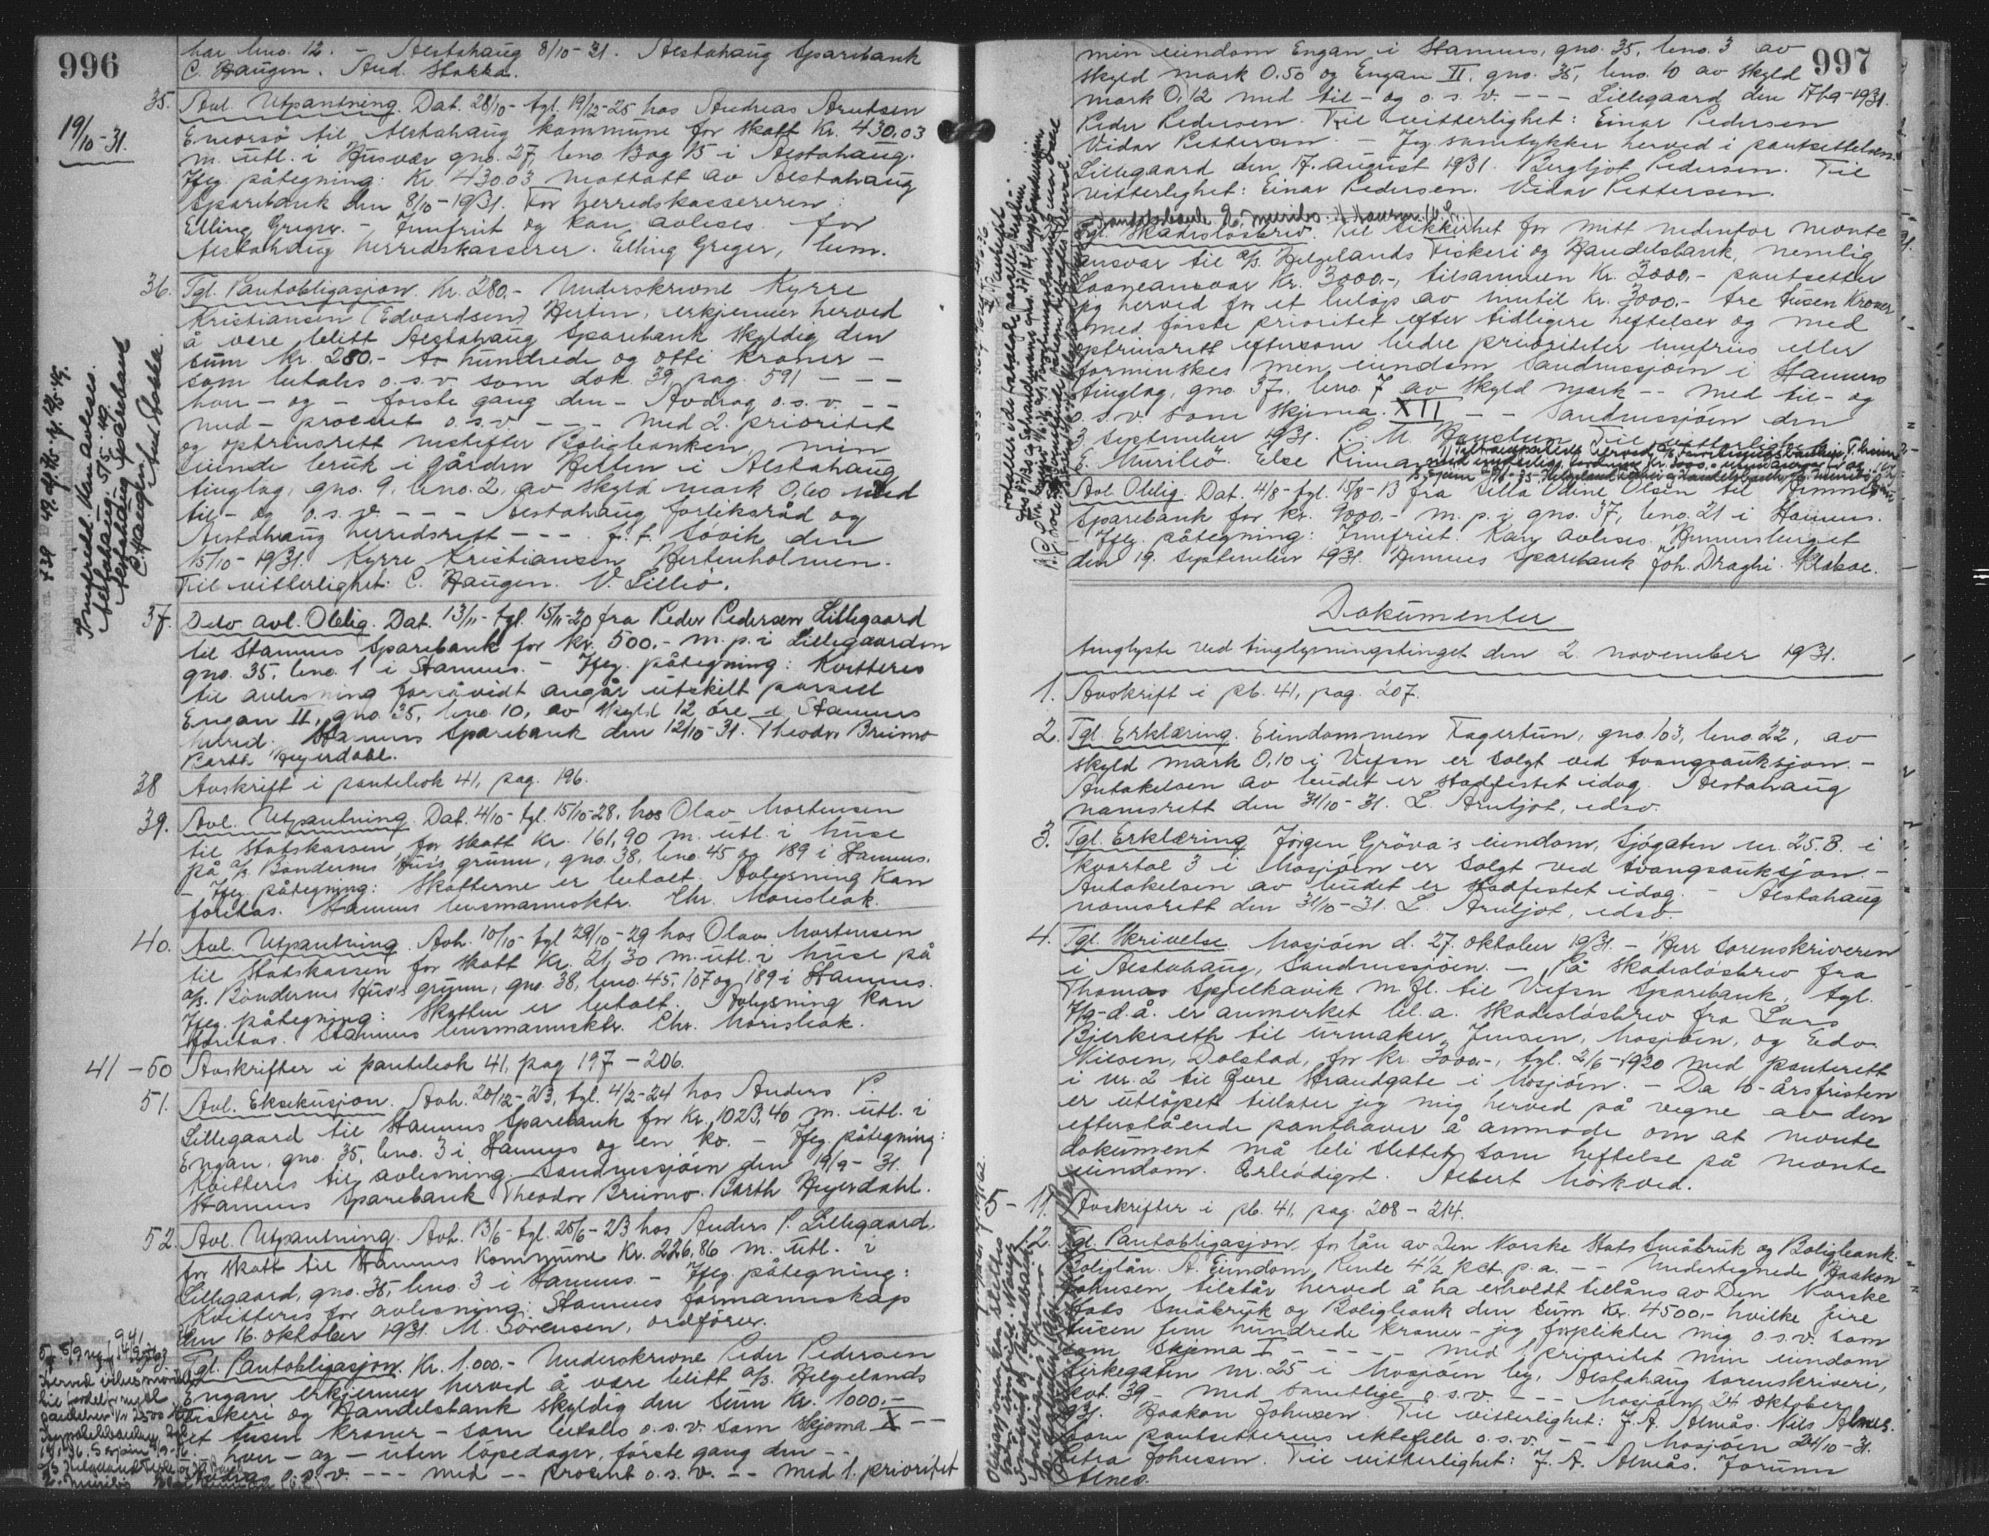 996
har bno. 12. - Alstahaug 8/10-31. Alstahaug Sparebank
C. Haugen. And. Stokka.
19/10-31.
35. Avl. Utpantning. Dat. 28/10- tgl. 19/12-25 hos Andreas Arntsen
til Alstahaug kommune for skatt Kr. 430,03
m. utl. i Husvær gno. 27, bno. 15 i Alstahaug.
Iflg. påtegning: Kr. 430.03 mottatt av Alstahaug
Sparebank den 8/10-1931. For herredskassereren:
Elling Greger. - Innfriet og kan avleses. for
Alstahaug herredskasserer. Elling Greger,
36. Tgl. Pantobligasjon. Kr. 280.- Underskrevne Kyrre
Kristiansen (Edvardsen) Herten, erkjenner herved
å være blitt Alstahaug Sparebank skyldig den
sum Kr. 280.- to hundrede og otti kroner -
som betales o.s.v. som dok. 39, pag. 591 - - -
hver - og - første gang den - Avdrag o.s.v. - -
med - procent o.s.v. - - - med 2. prioritet
og optrinsrett næstefter Boligbanken, min
eiende bruk i gården Herten i Alstahaug
tinglag, gno. 9, bno. 2, av skyld mark 0,60 med
til- og o.s.v. - - - Alstahaug forliksråd og
Alstahaug herredsrett - - - f. t. Søvik den
15/10-1931. Kyrre Kristiansen Hertenholmen.
Til vitterlighet: C. Haugen. V. Lillio.
37. Delv. avl. Oblig. Dat. 13/11- tgl. 15/11-20 fra Peder Pedersen Lillegaard
til Stamnes Sparebank for kr. 500.- m. p. i Lillegaarden
gno. 35, bno. 1 i Stamnes. - Iflg. påtegning: Kvitteres
til avlesning forsåvidt angår utskilt parsell
Engan II, gno. 35, bno. 10, av skyld 12 øre i Stamnes
herred. Stamnes Sparebank den 12/10-31. Theodor Brinno
Barth Heyerdahl.
38 Avskrift i pantebok 41, pag. 196.
39. Avl. Utpantning. Dat. 4/10- tgl. 15/10-28, hos Olav Mortensen
til Statskassen for skatt Kr. 161,90 m. utl. i huse
på A/s Bøndernes Hus's grunn, gno. 38, bno. 45 og 189 i Stamnes.
- Iflg. påtegning: Skatterne er betalt. Avlysning kan
foretas. Stamnes lensmannsktr. Chr. Morisbak.
40. Avl. Utpantning. Avh. 10/10- tgl 29/10-29 hos Olav Mortensen
til Statskassen for skatt Kr. 21,30 m. utl. i huse på
A/s. Bøndernes Hus's grunn, gno 38, bno. 45, 107 og 189 i Stamnes.
Iflg. påtegning: Skatten er betalt. Avlysning kan
foretas. Stamnes lensmannsktr. Chr. Morisbak.
41-50 Avskrifter i pantebok 41, pag 197-206.
51. Avl. Eksekusjon. Avh. 20/12-23, tgl. 4/2-24 hos Anders P.
Lillegaard til Stamnes Sparebank for Kr. 1023,40 m. utl. i
Engan, gno. 35, bno. 3 i Stamnes og en ko. - Iflg. påtegning:
Kvitteres til avlesning. Sandnessjøen den 19/9-31.
Stamnes Sparebank Theodor Brinno. Barth Heyerdahl.
52. Avl. Utpantning. Avh. 13/6- tgl. 25/6-23 hos Anders P. Lillegaard.
for skatt til Stamnes Kommune Kr. 226,86 m. utl. i
Lillegaard, gno. 35, bno. 3 i Stamnes. - Iflg. påtegning:
Kvitteres for avlesning. Stamnes formannskap
den 16. oktober 1931. M. Sørensen, ordfører.
Tgl. Pantobligasjon. Kr. 1.000.- Underskrevne Peder Pedersen
Engan erkjenner herved å være blitt A/s. Helgelands
Fiskeri og Handelsbank skyldig den sum Kr. 1000.-
et tusen kroner - som betales o.s.v. som skjema X - -
- hver - og - uten løpedager, første gang den - -
Avdrag o.s.v. - - - med - - procent o.s.v. - - med 1. prioritet
997
min eiendom Engan i Stamnes, gno. 35, bno. 3 av
skyld mark 0.50 og Engan II, gno. 35, bno. 10 av skyld
mark 0,12 med til- og o.s.v. - - - Lillegaard den 17/9-1931.
Peder Pedersen. Til vitterlighet: Einar Pedersen
Vidar Pettersen - Jeg samtykker herved i pantsettelsen.
Lillegaard den 17. august 1931. Bergljot Pedersen. Til
vitterlighet: Einar Pedersen. Vidar Pettersen.
Tgl. Skadesløsbrev. Til sikkerhet for mitt nedenfor nevnte
ansvar til A/s. Helgelands Fiskeri og Handelsbank, nemlig
Laaneansvar Kr. 3000.-, tilsammen Kr. 3000.- pantsetter
jeg herved for et beløp av inntil Kr. 3000.- tre tusen Kroner
med første prioritet efter tidligere heftelser og med
optrinsrett eftersom bedre prioriteter innfries eller
forminskes min eiendom Sandnessjøen i Stamnes
tinglag, gno. 37, bno. 7 av skyld mark - - med til- og
o.s.v. som skjema XII - - Sandnessjøen den
3. september 1931. P. M. Til vitterlighet:
E. Muribø. Else
Avl. Oblig. Dat. 4/8- tgl. 15/8-13 fra Olsen til Hemnes
Sparebank for kr. 9000.- m. p. i gno. 37, bno. 21 i Stamnes.
- Iflg. påtegning: Innfriet. Kan avleses. Hemnesberget
den 19. september 1931. Hemnes Sparebank Joh. Draghi.
Dokumenter
tinglyste ved tinglysningstinget den 2. november 1931.
1. Avskrift i pb. 41, pag. 207.
2. Tgl. Erklæring. Eiendommen Fagertun, gno. 103, bno. 22, av
skyld mark 0,10 i Vefsn er solgt ved tvangsauksjon. -
Antakelsen av budet er stadfestet idag. Alstahaug
namsrett den 31/10-31. L. Arntjot, edsv.
3. Tgl. Erklæring Jørgen Grøva's eiendom, Sjøgaten nr. 25.B. i
kvartal 3 i Mosjøen er solgt ved tvangsauksjon. -
Antakelsen av budet er stadfestet idag. - Alstahaug
namsrett den 31/10-31. L. Arntjot, edsv.
4. Tgl. Skrivelse. Mosjøen d. 27. oktober 1931. - Herr Sorenskriveren
i Alstahaug, Sandnessjøen. - På skadesløsbrev fra
Thomas Spjelkavik m. fl. til Vefsn Sparebank, tgl.
7/9 d.å. er anmerket bl. a. skadesløsbrev fra Lars
Bjerkeseth til urmaker Jensen, Mosjøen, og Edv.
Nilsen, Dolstad, for kr. 3000.-, tgl. 2/6-1920 med panterett
i nr. 2 til Øvre Strandgate i Mosjøen. - Da 10-årsfristen
er utløpet tillater jeg mig herved på vegne av den
efterstående panthaver å anmode om at nevnte
dokument må bli slettet som heftelse på nevnte
eiendom. Erbødigst. Albert Mörkved.
5-11. Avskrifter i pb. 41, pag. 208-214.
12. Tgl. Pantobligasjon for lån av Den Norske Stats Småbruk og Boligbank.
Boliglån. A. Eiendom, Rente 4 1/2 pct. p.a. - - Undertegnede Haakon
Johnsen tilstår herved å ha erholdt tillåns av Den Norske
Stats Småbruk og Boligbank den sum Kr. 4500.- hvilke fire
tusen fem hundrede kroner - jeg forplikter mig o.s.v. som
som skjema I - - - - - med 1. prioritet min eiendom
Kirkegaten nr. 25 i Mosjøen by, Alstahaug sorenskriveri,
kvt. 39 - med samtlige o.s.v. - - Mosjøen 24 oktober
1931. Haakon Johnsen. Til vitterlighet: J. A. Almås. Nils Almes.
Som pantsetterens ektefelle o.s.v. - - - Mosjøen 24/10-31.
Petra Johnsen. Til vitterlighet: J. A. Almås. Jorunn
Almes.